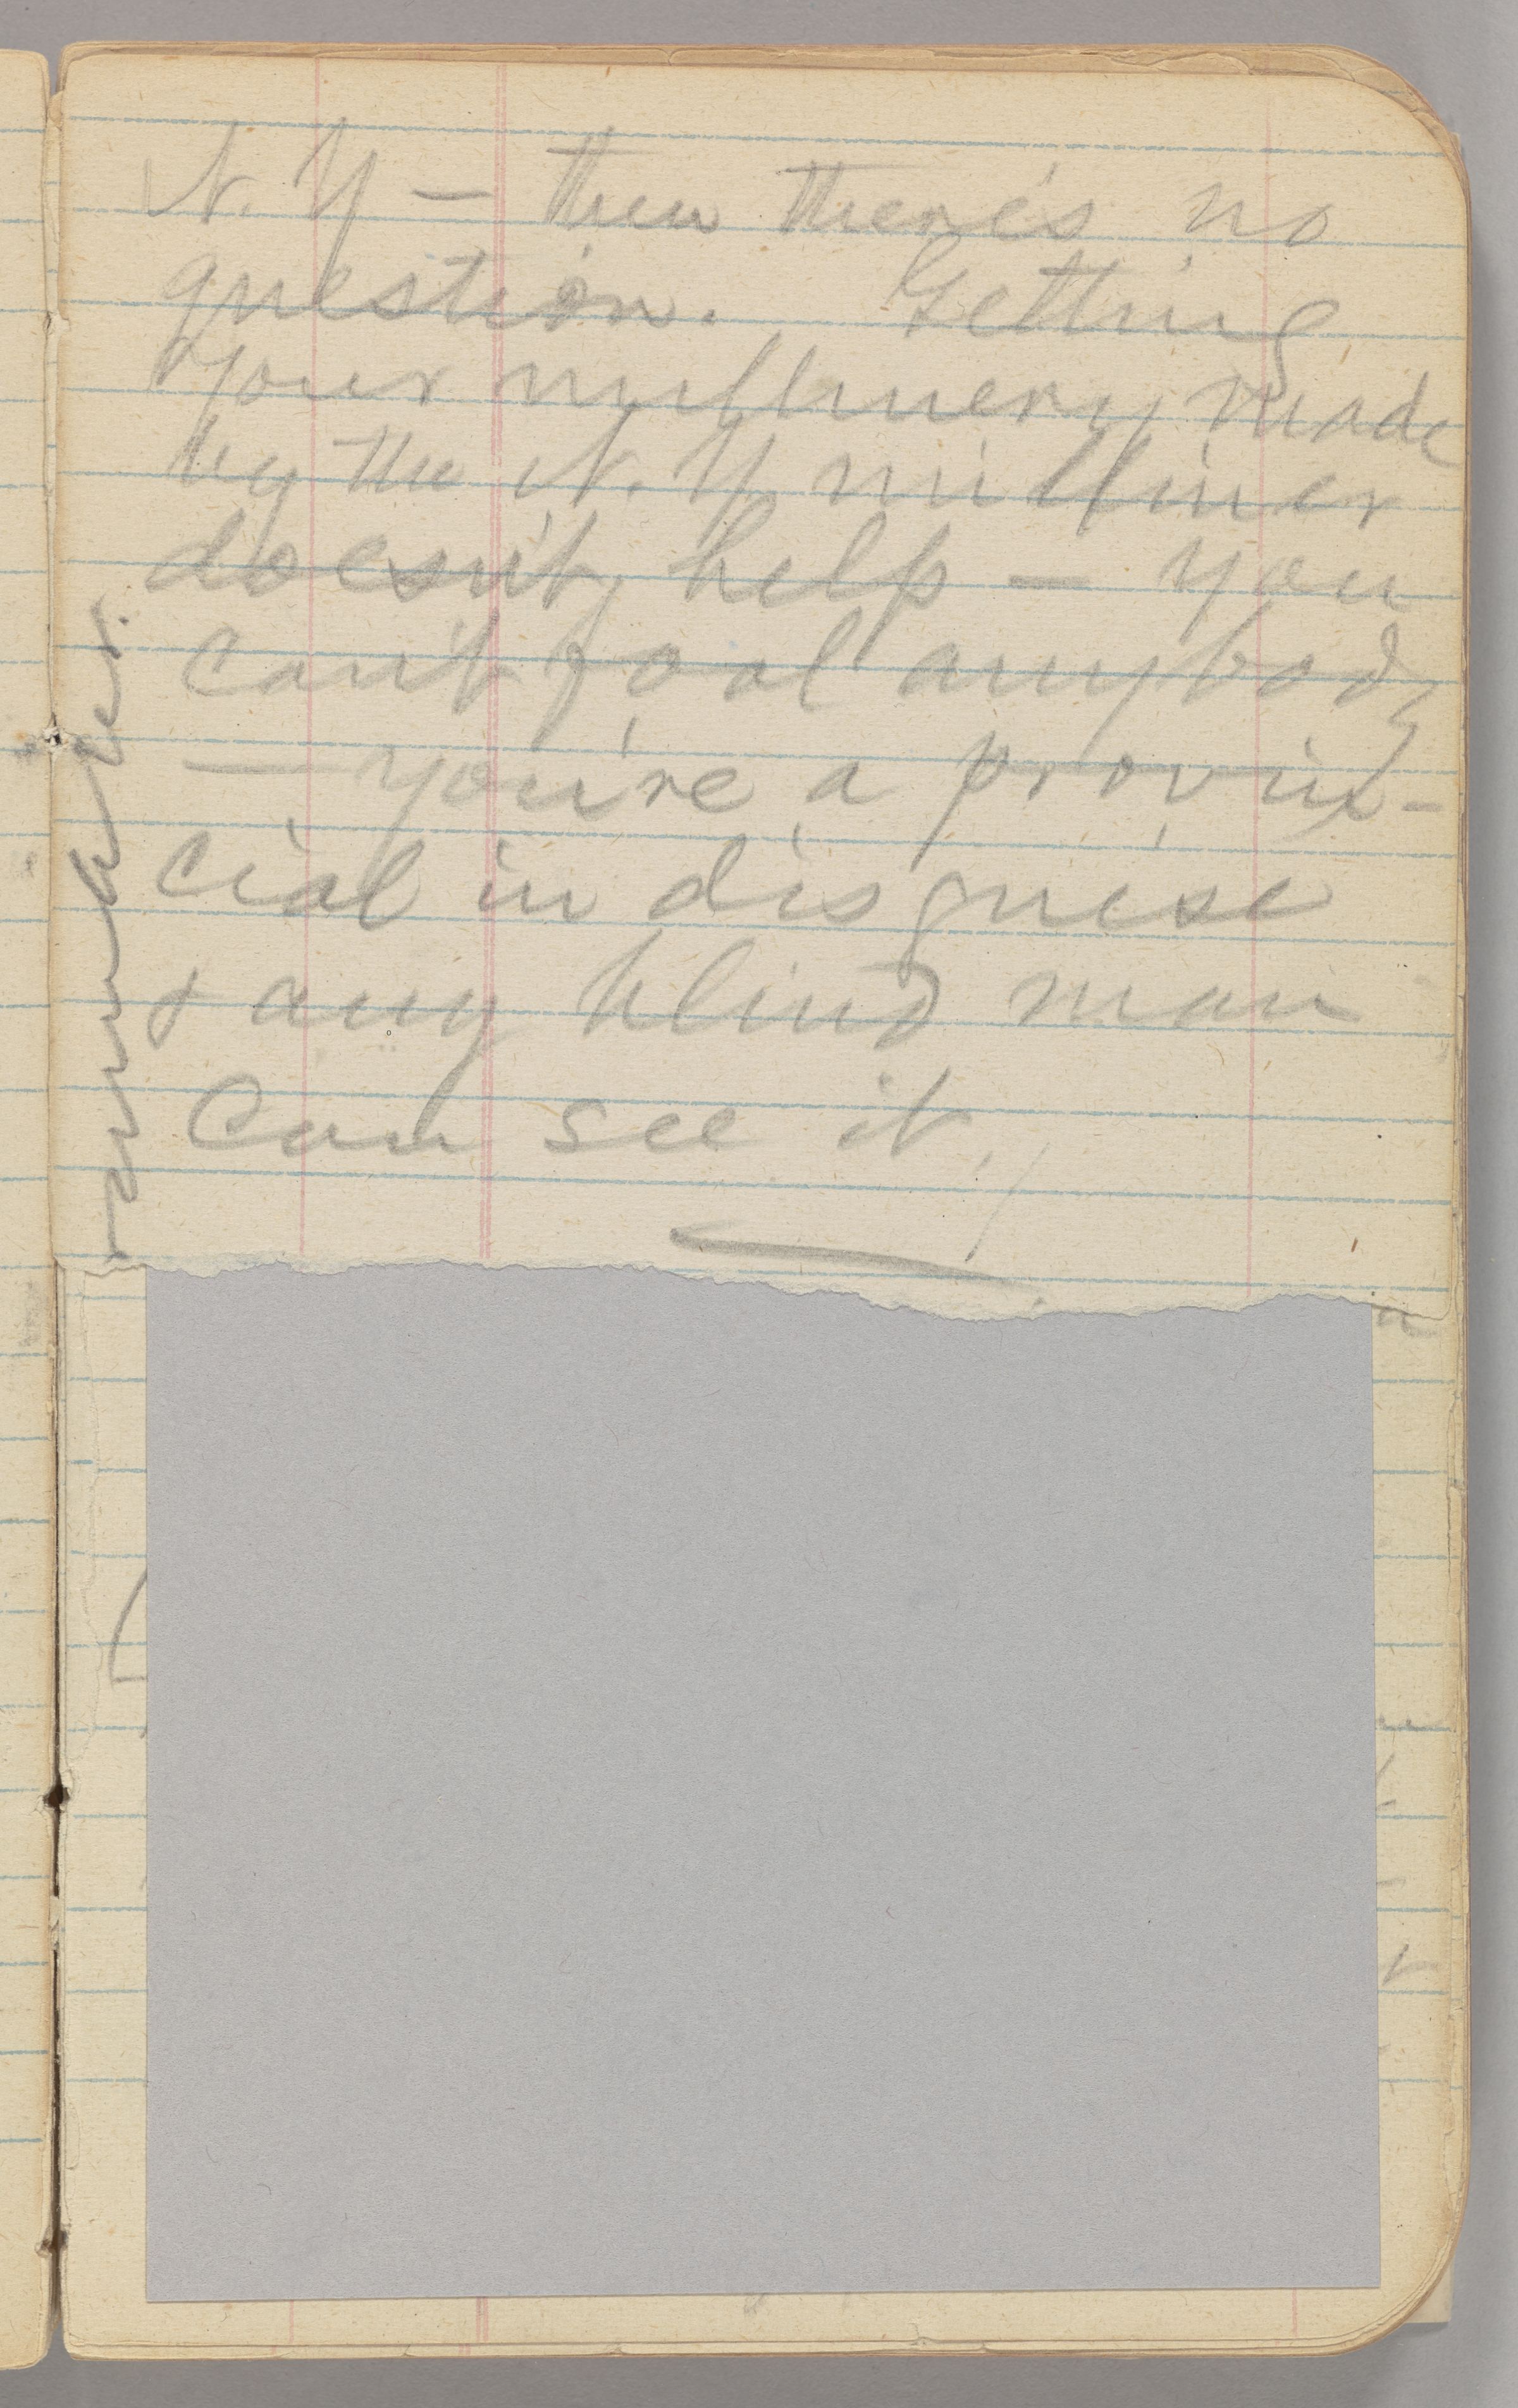 N. Y — then there's no
question. Getting
your millinery made
by the N. Y milliner
doesn't help — you
can't fool anybody
— you're a provin-
cial in disguise
& any blind man
can see it.